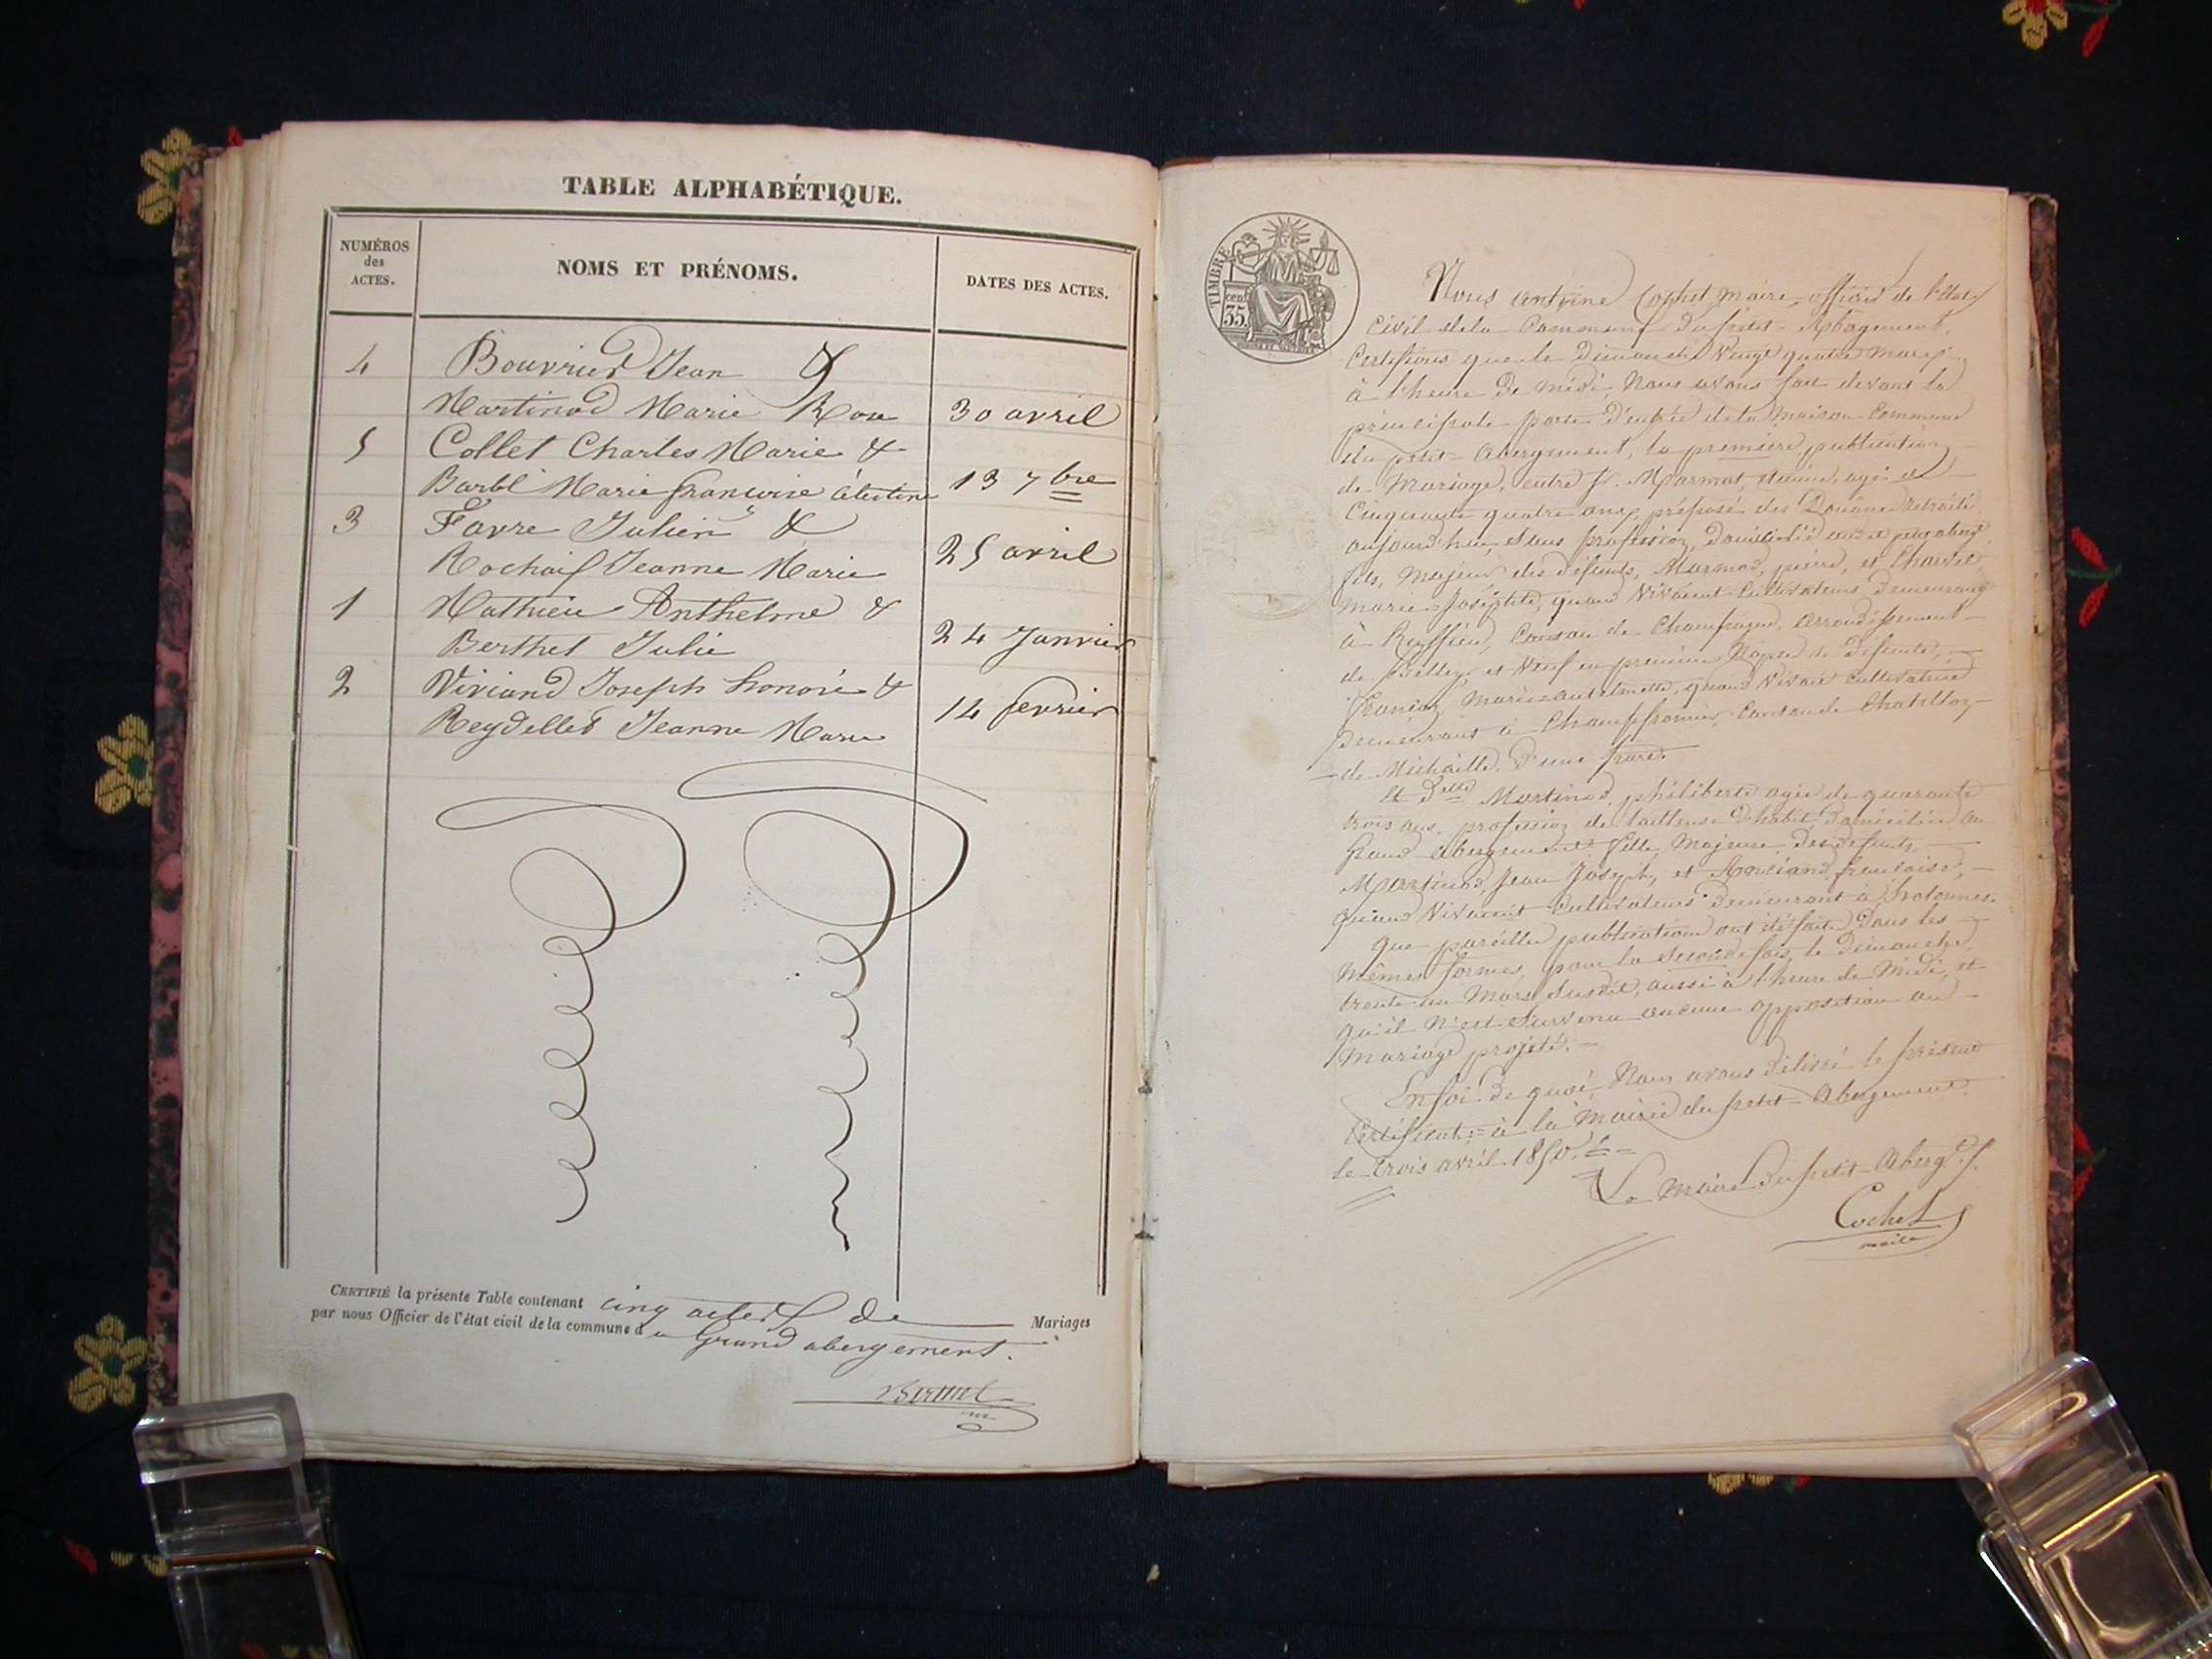 TABLE ALPHABÉTIQUE.
NUMÉROS
des
ACTES.
NOMS ET PRÉNOMS.
DATES DES ACTES.
4 Bouvrier Jean &
Martinod Marie Rose 30 avril
5 Collet Charles Marie &
Marie françoise célestine 13 7bre
3 Favre Julien &
Jeanne Marie 25 avril
1 Mathieu Anthelme &
Berthet Julie 24 Janvier
2 Viviand Joseph honoré &
Reydellet Jeanne Marie 14 fevrier
CERTIFIÉ la présente Table contenant cinq actes de Mariages
par nous Officier de l'état civil de la commune du Grand abergement.
TIMBRE
cent
35
Nous antoine Cochet, maire, officier de l'état
Civil de la Commune du petit-Abergement.
Certifions que le Dimanche Vingt quatre mars,
à l'heure de midi, Nous avons fait devant la
principale porte d'entrée de la Maison Commune
du petit-abergement, la première publication
de Mariage, entre Sr. Marmot, agé de
Cinquante quatre ans, préposé des Douane retraité
aujourd'hui, sans profession, Domicilié
fils, Majeur des défunts, Marmod, pierre, et
Marie-Josephte, quand Vivaient Cultivateurs Demeurant
à Ruffieu, Canton de Champagne, arrondissement
de Belley, et Veuf en première Noces de Defunte,
Marie=antelmette, quand Vivait Cultivatrice
Demeurant à Champfromier, Canton de Chatillon
de Michaille. D'une part.
Et Delle Martinod, philiberte agée de quarante
trois ans, profession de tailleuse D'habit Domiciliée au
Grand abergement fille Majeure, Des defunts,
Martinod, Jean Joseph, et françoise,
quand Vivaient Cultivateurs Demeurant à hotonnes.
Que pareilles publication ont été fait Dans les
mêmes formes, pour la seconde fois, le Dimanche
trente un Mars Susdit, aussi à l'heure de Midi, et
qu'il n'est Survenu aucune opposition au
Mariage projeté.
En foi de quoi, Nous avons Délivré le présent
Certificat=à la Mairie du petit-Abergement.
le trois avril 1850.
Le Maire Du petit-Abergt.
Cochet